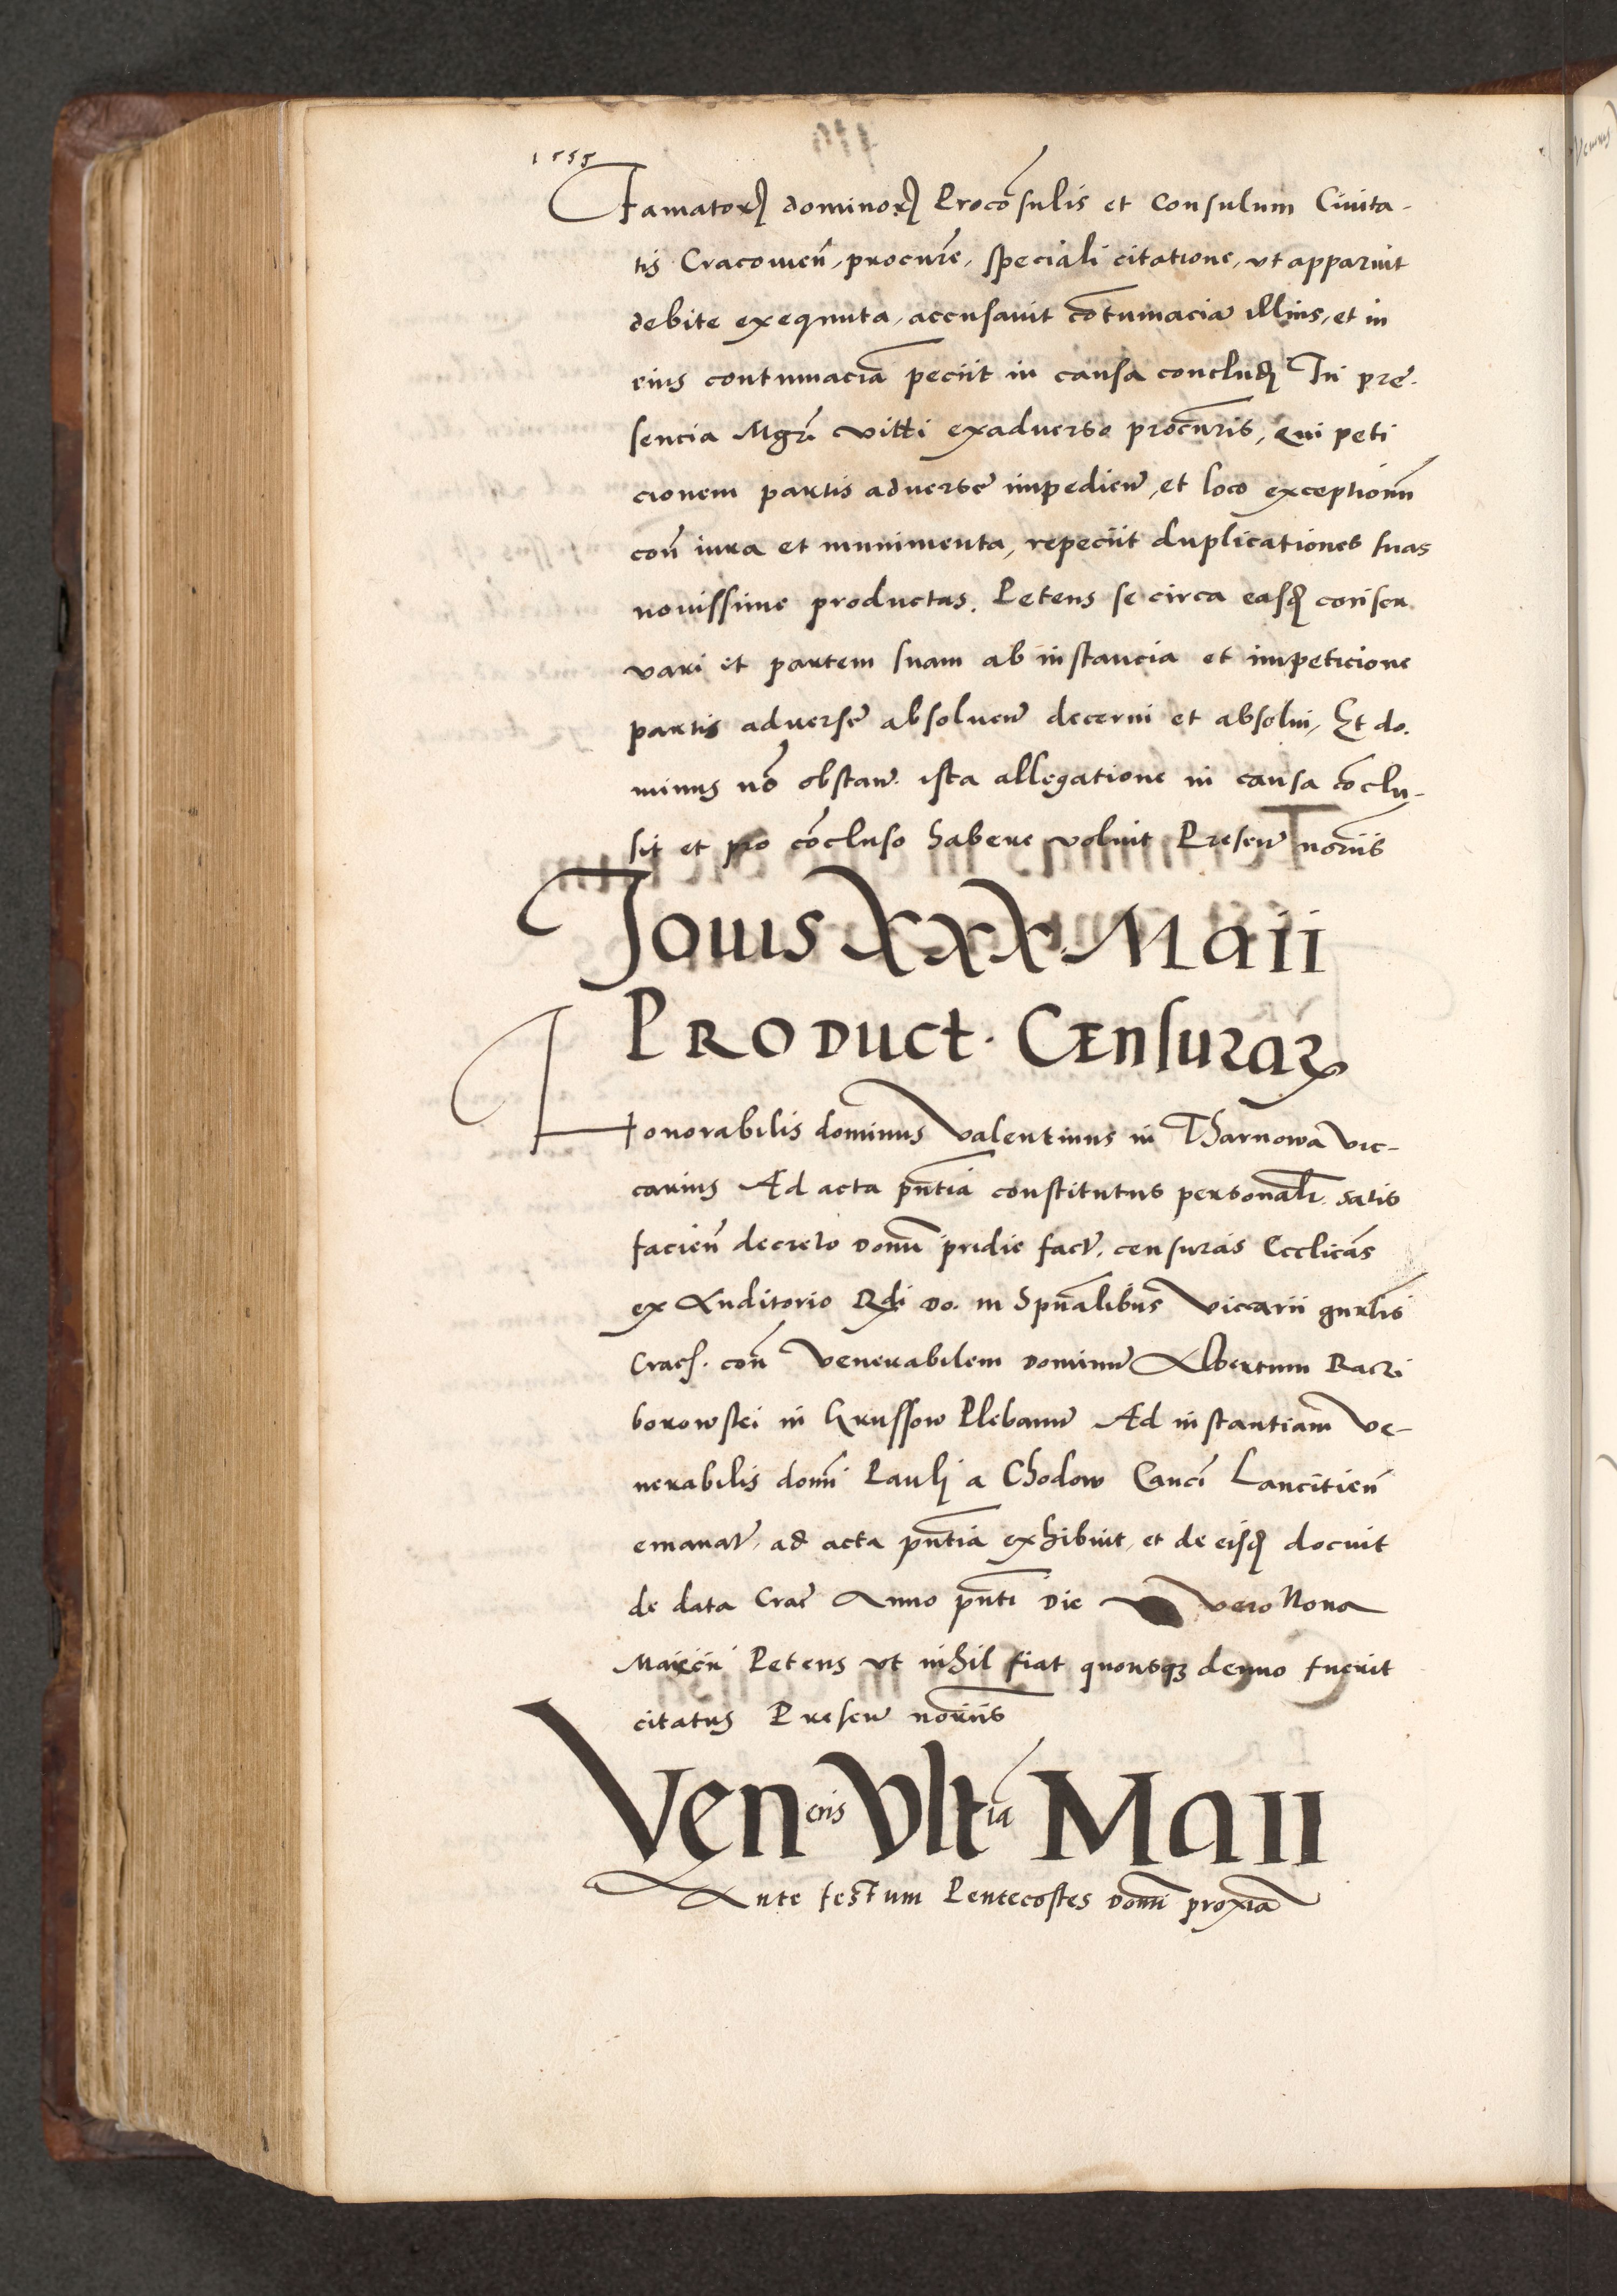 1555
Famatorꝝ dominorꝝ Procõsulis et Consulum Ciuita-
tis Cracouieñ, procur̃e, speciali citatione, vt apparuit
debite exequuta, accusauit cõtumaciã illius, et in
eius contumaciã peciit in causa concludj In pre-
sencia Mgr̃i vitti exaduerso procur̃is, Qui peti
cionem partis aduerse impedieñ, et loco exceptionũ
con̄ iura et munimenta, repeciit duplicationes suas
nouissime productas. Petens se circa easdj conser
vari et partem suam ab instancia et impeticione
partis aduerse absoluenʼ decerni et absolui, Et do.
minus nõ obstanʼ. ista allegatione in causa cõclu-
sit et pro cõcluso habere voluit Presenʼ nor̃iis
Jouis XXX Maii
Product. Censuraꝝ
Honorabilis dominus Valentinus in Tharnowa vic-
carius Ad acta pñtia constitutus personalr̃. satis
facieñ decreto domi pridie factʼ. censuras Ecclicas
ex Auditorio Rdi do. in Spũalibus Viccarii gnr̃lis
Cracj. con̄ Venerabilem dominũ Albertum Raczi
borowskj in Krussow Plebanũ Ad instantiam Ve-
nerabilis domi Pauli a Chodow Canci Lancitieñ
emanatʼ, ad acta pñtia exhibuit, et de eisdj docuit
de data Crac̃ Anno pñti Die vero Nona
Maii Petens vt nihil fiat quousqꝫ denuo fuerit
citatus Presenʼ nor̃iis
Veneris Vltia Maii
Ante festum Pentecostes domi proxia